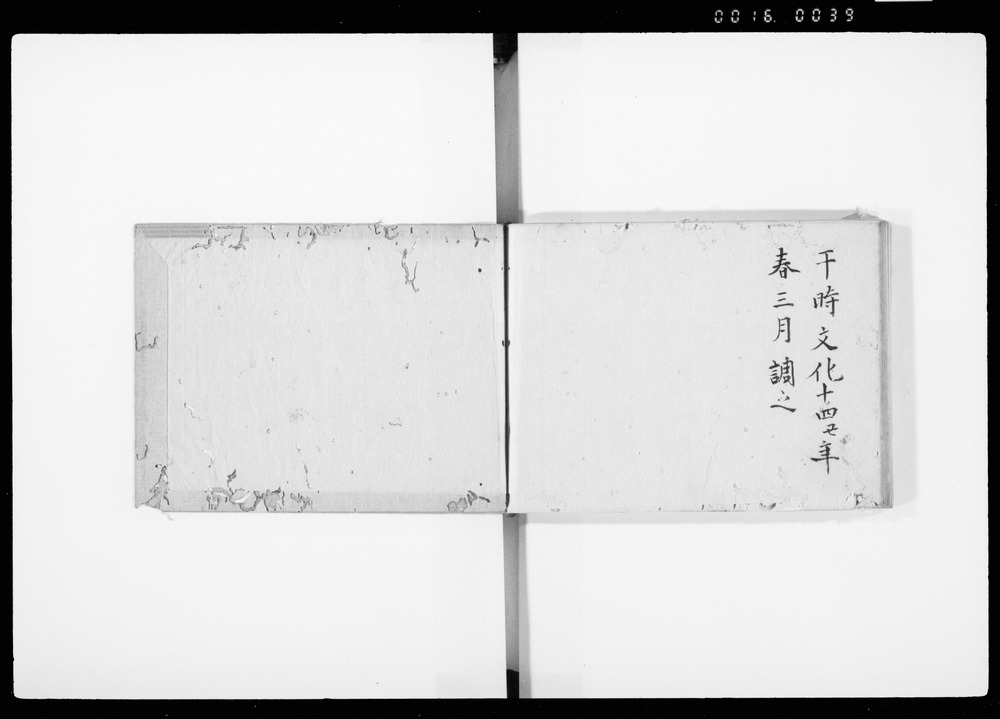 0016. 0039
干時文化十四丑年
春三月調之